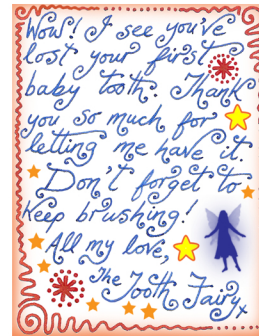 Wow! I see you've
lost your first
baby tooth. Thank
you so much for
letting me have it.
Don't forget to
keep brushing!
All my love,
The Tooth Fairy x